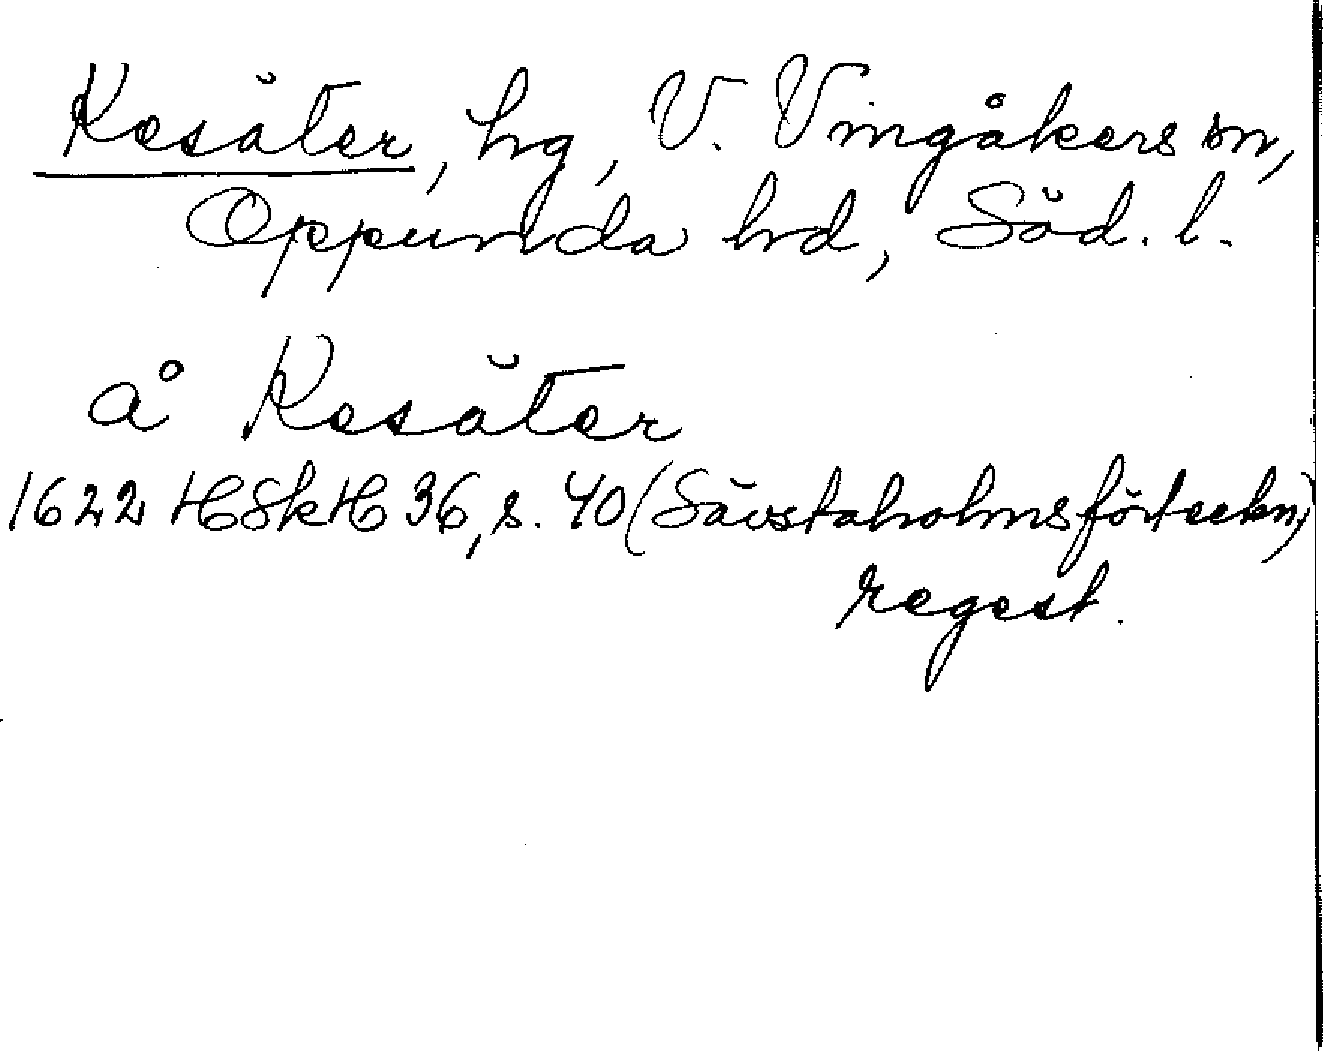 Kesäter, hg, V. Vingåkers sn,
Oppunda hd, Söd. l.
å Kesäter
1622 HSkH 36, s. 40 (Sävstaholmsförteckn)
regest.